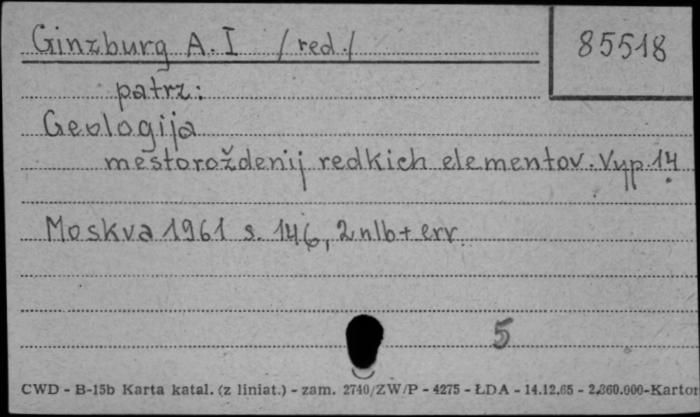 Ginzburg A. I /red./
85518
patrz:
Geologija
mestoroždenij redkich elementov. Vyp 14
Moskva 1961 s. 146, 2 nlb + err.
5
CWD - B-15b Karta katal. (z liniat.) - zam. 2740/ZW/P - 4275 - ŁDA - 14.12.65 - 2.860.000-Karton